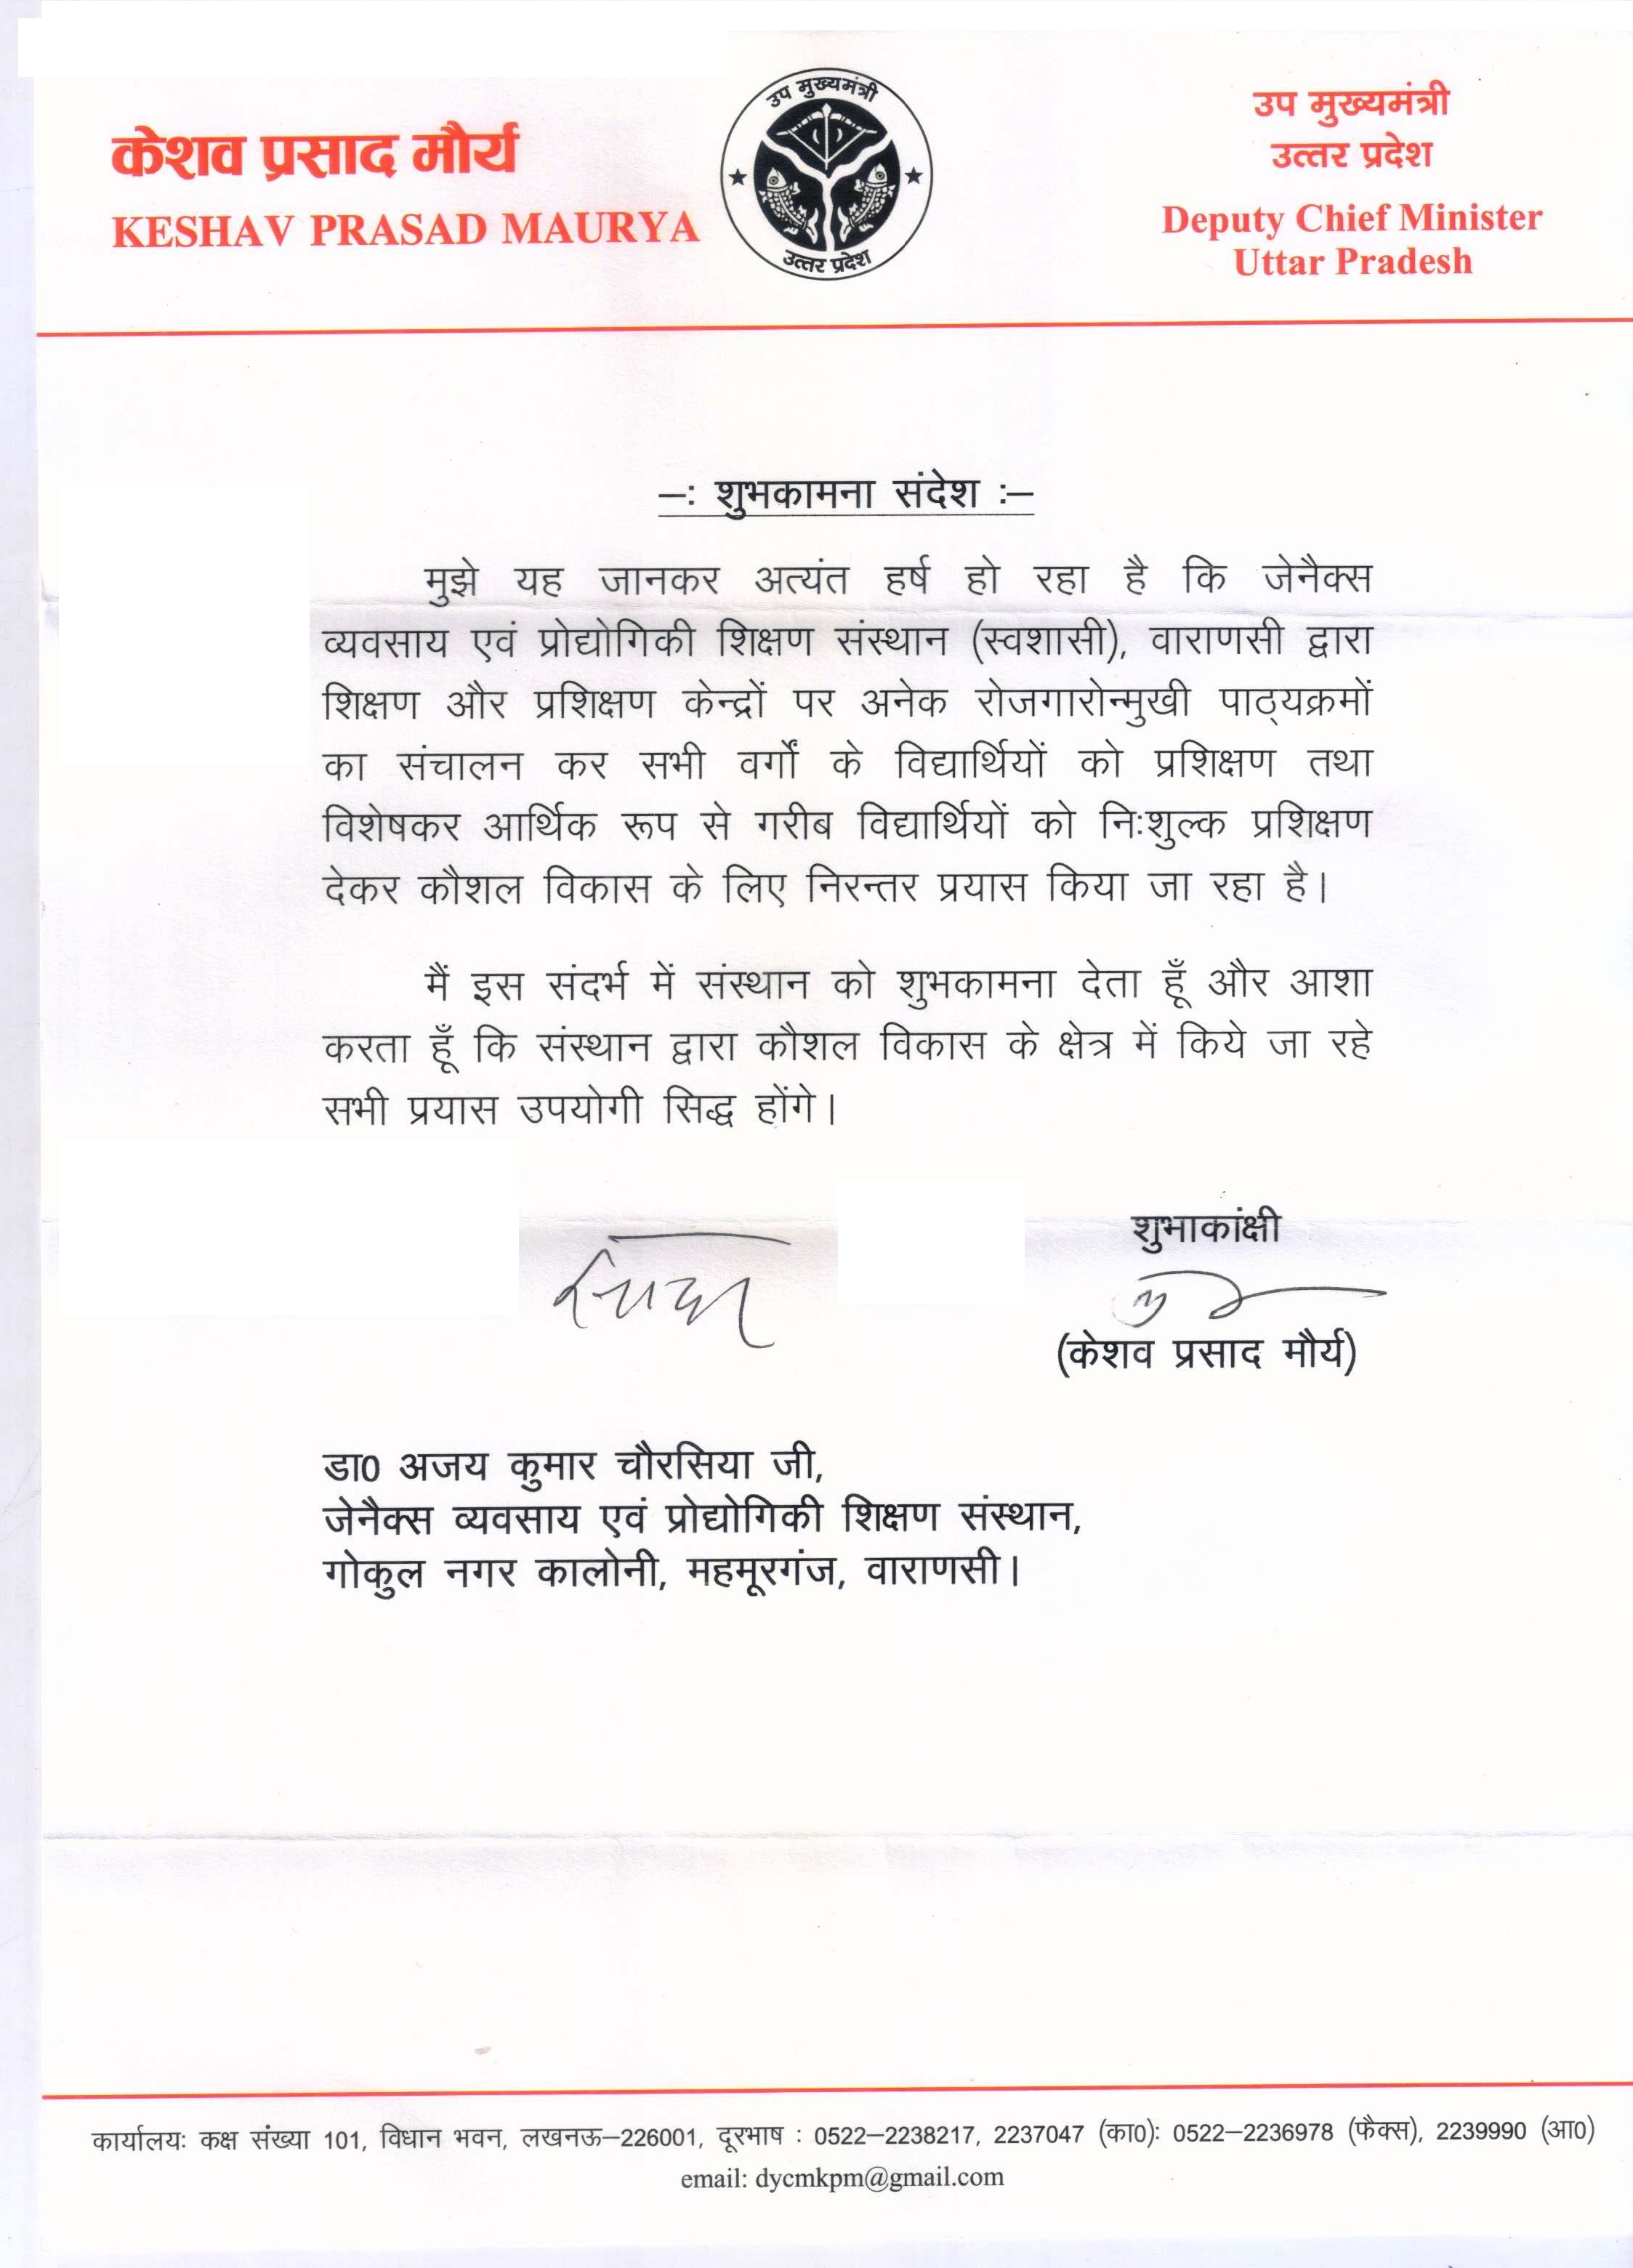 केशव प्रसाद मौर्य
KESHAV PRASAD MAURYA
उप मुख्यमंत्री
उत्तर प्रदेश
उप मुख्यमंत्री
उत्तर प्रदेश
Deputy Chief Minister
Uttar Pradesh
–: शुभकामना संदेश :–
मुझे यह जानकर अत्यंत हर्ष हो रहा है कि जेनैक्स
व्यवसाय एवं प्रोद्योगिकी शिक्षण संस्थान (स्वशासी), वाराणसी द्वारा
शिक्षण और प्रशिक्षण केन्द्रों पर अनेक रोजगारोन्मुखी पाठ्यक्रमों
का संचालन कर सभी वर्गों के विद्यार्थियों को प्रशिक्षण तथा
विशेषकर आर्थिक रूप से गरीब विद्यार्थियों को निःशुल्क प्रशिक्षण
देकर कौशल विकास के लिए निरन्तर प्रयास किया जा रहा है।
मैं इस संदर्भ में संस्थान को शुभकामना देता हूँ और आशा
करता हूँ कि संस्थान द्वारा कौशल विकास के क्षेत्र में किये जा रहे
सभी प्रयास उपयोगी सिद्ध होंगे।
शुभाकांक्षी
(केशव प्रसाद मौर्य)
डा0 अजय कुमार चौरसिया जी,
जेनैक्स व्यवसाय एवं प्रोद्योगिकी शिक्षण संस्थान,
गोकुल नगर कालोनी, महमूरगंज, वाराणसी।
कार्यालयः कक्ष संख्या 101, विधान भवन, लखनऊ–226001, दूरभाष : 0522–2238217, 2237047 (का0): 0522–2236978 (फैक्स), 2239990 (आ0)
email: dycmkpm@gmail.com